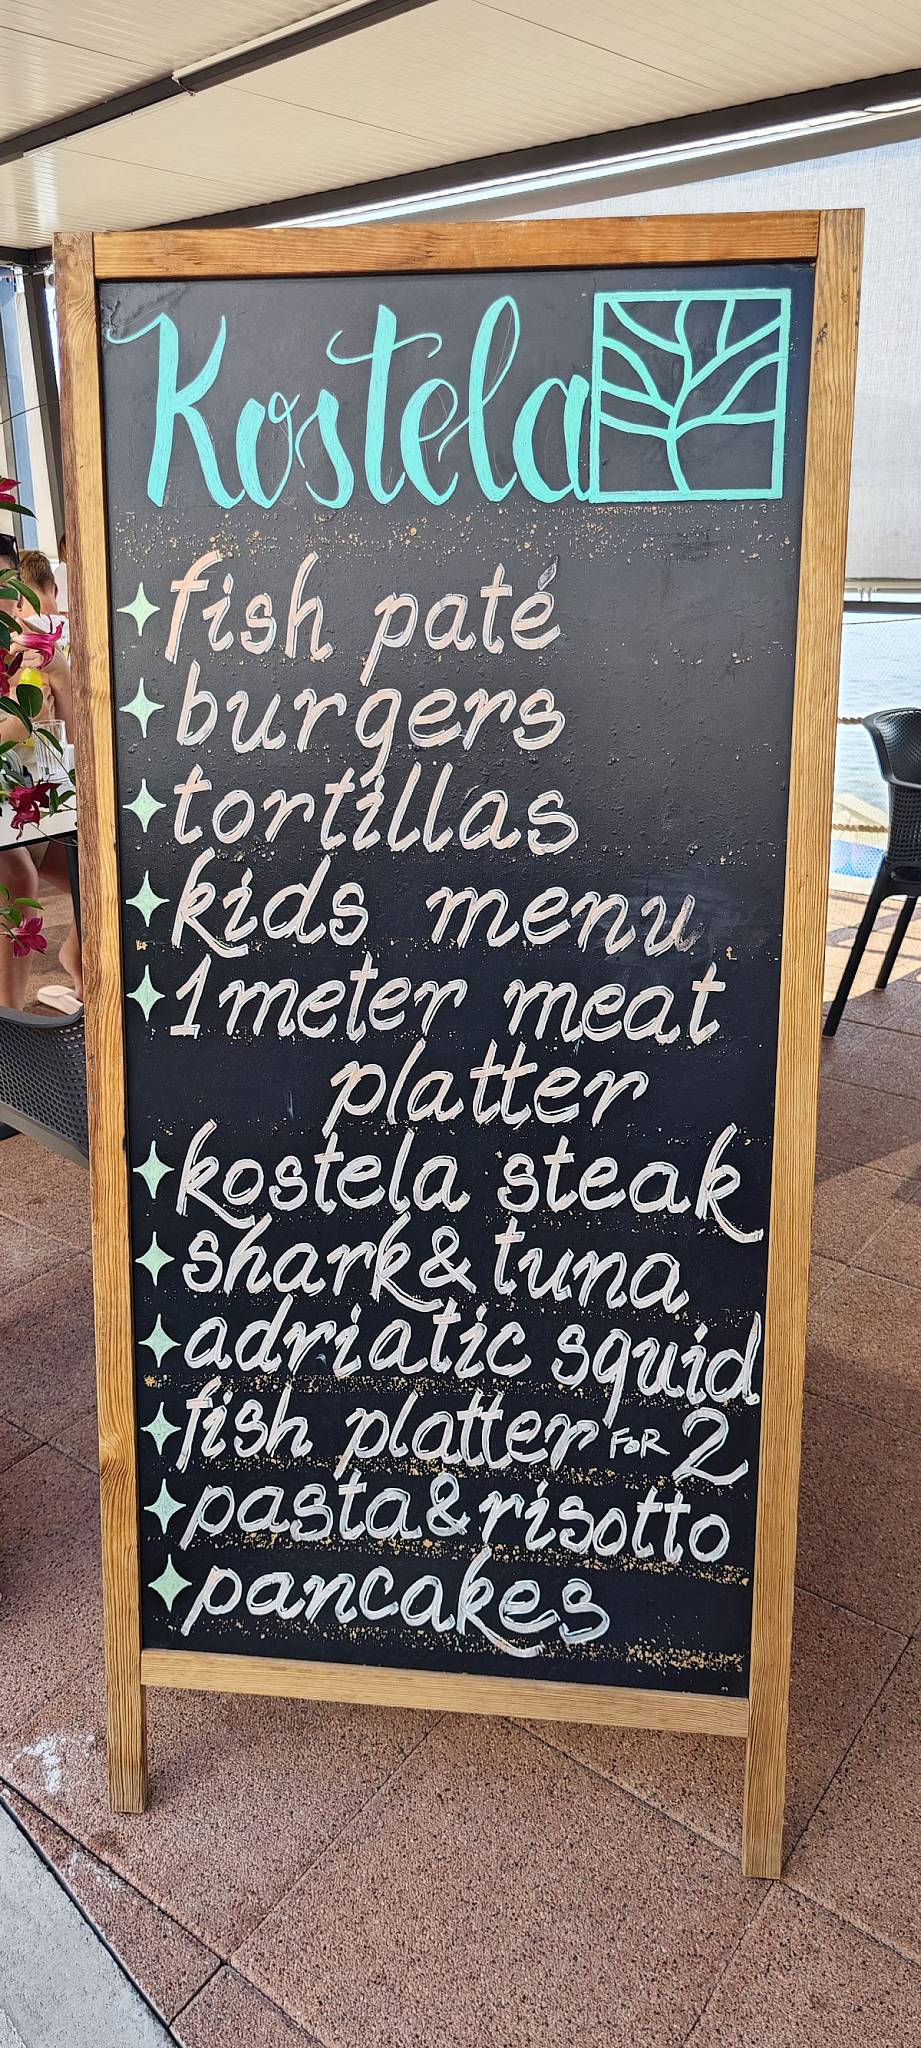 Kostela
fish paté
burgers
tortillas
kids menu
1 meter meat
platter
kostela steak
shark & tuna
adriatic squid
fish platter FOR 2
pasta & risotto
pancakes